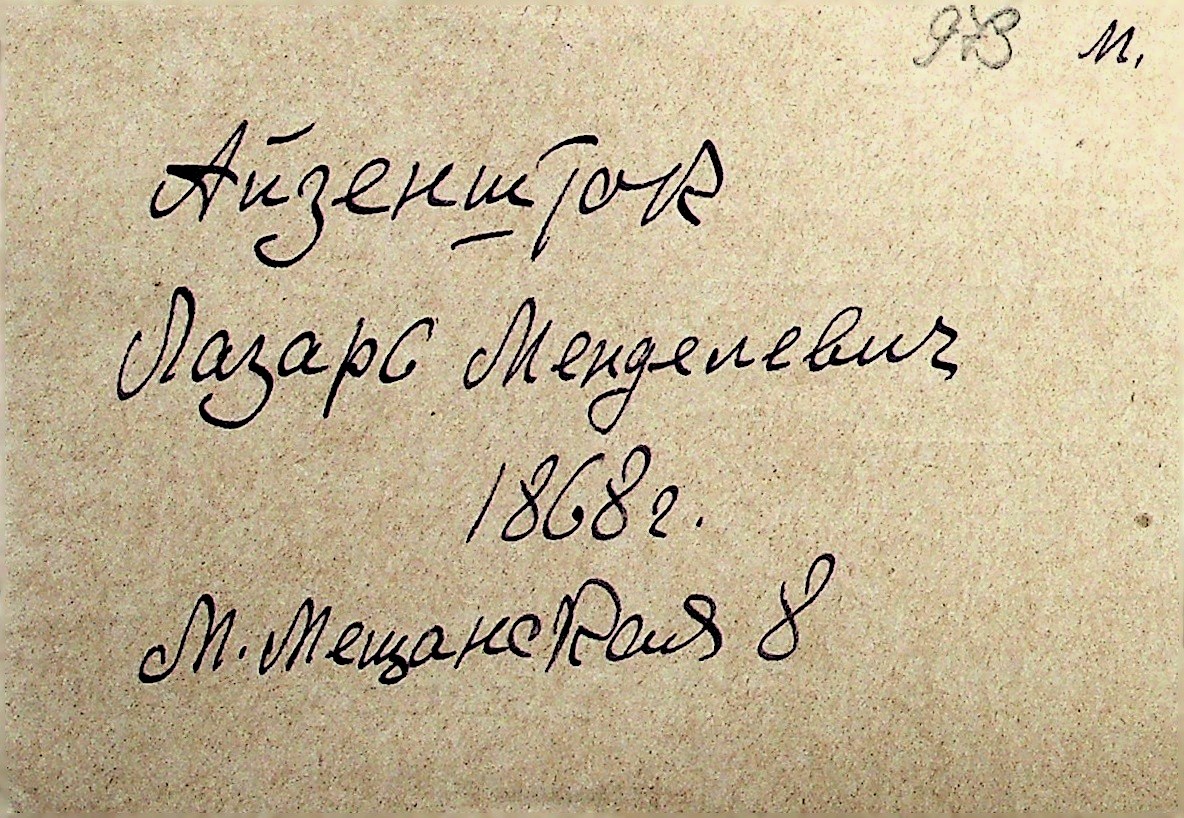 м.
Айзеншток
Лазарь Менделевич
1868 г.
М. Мещанская 8